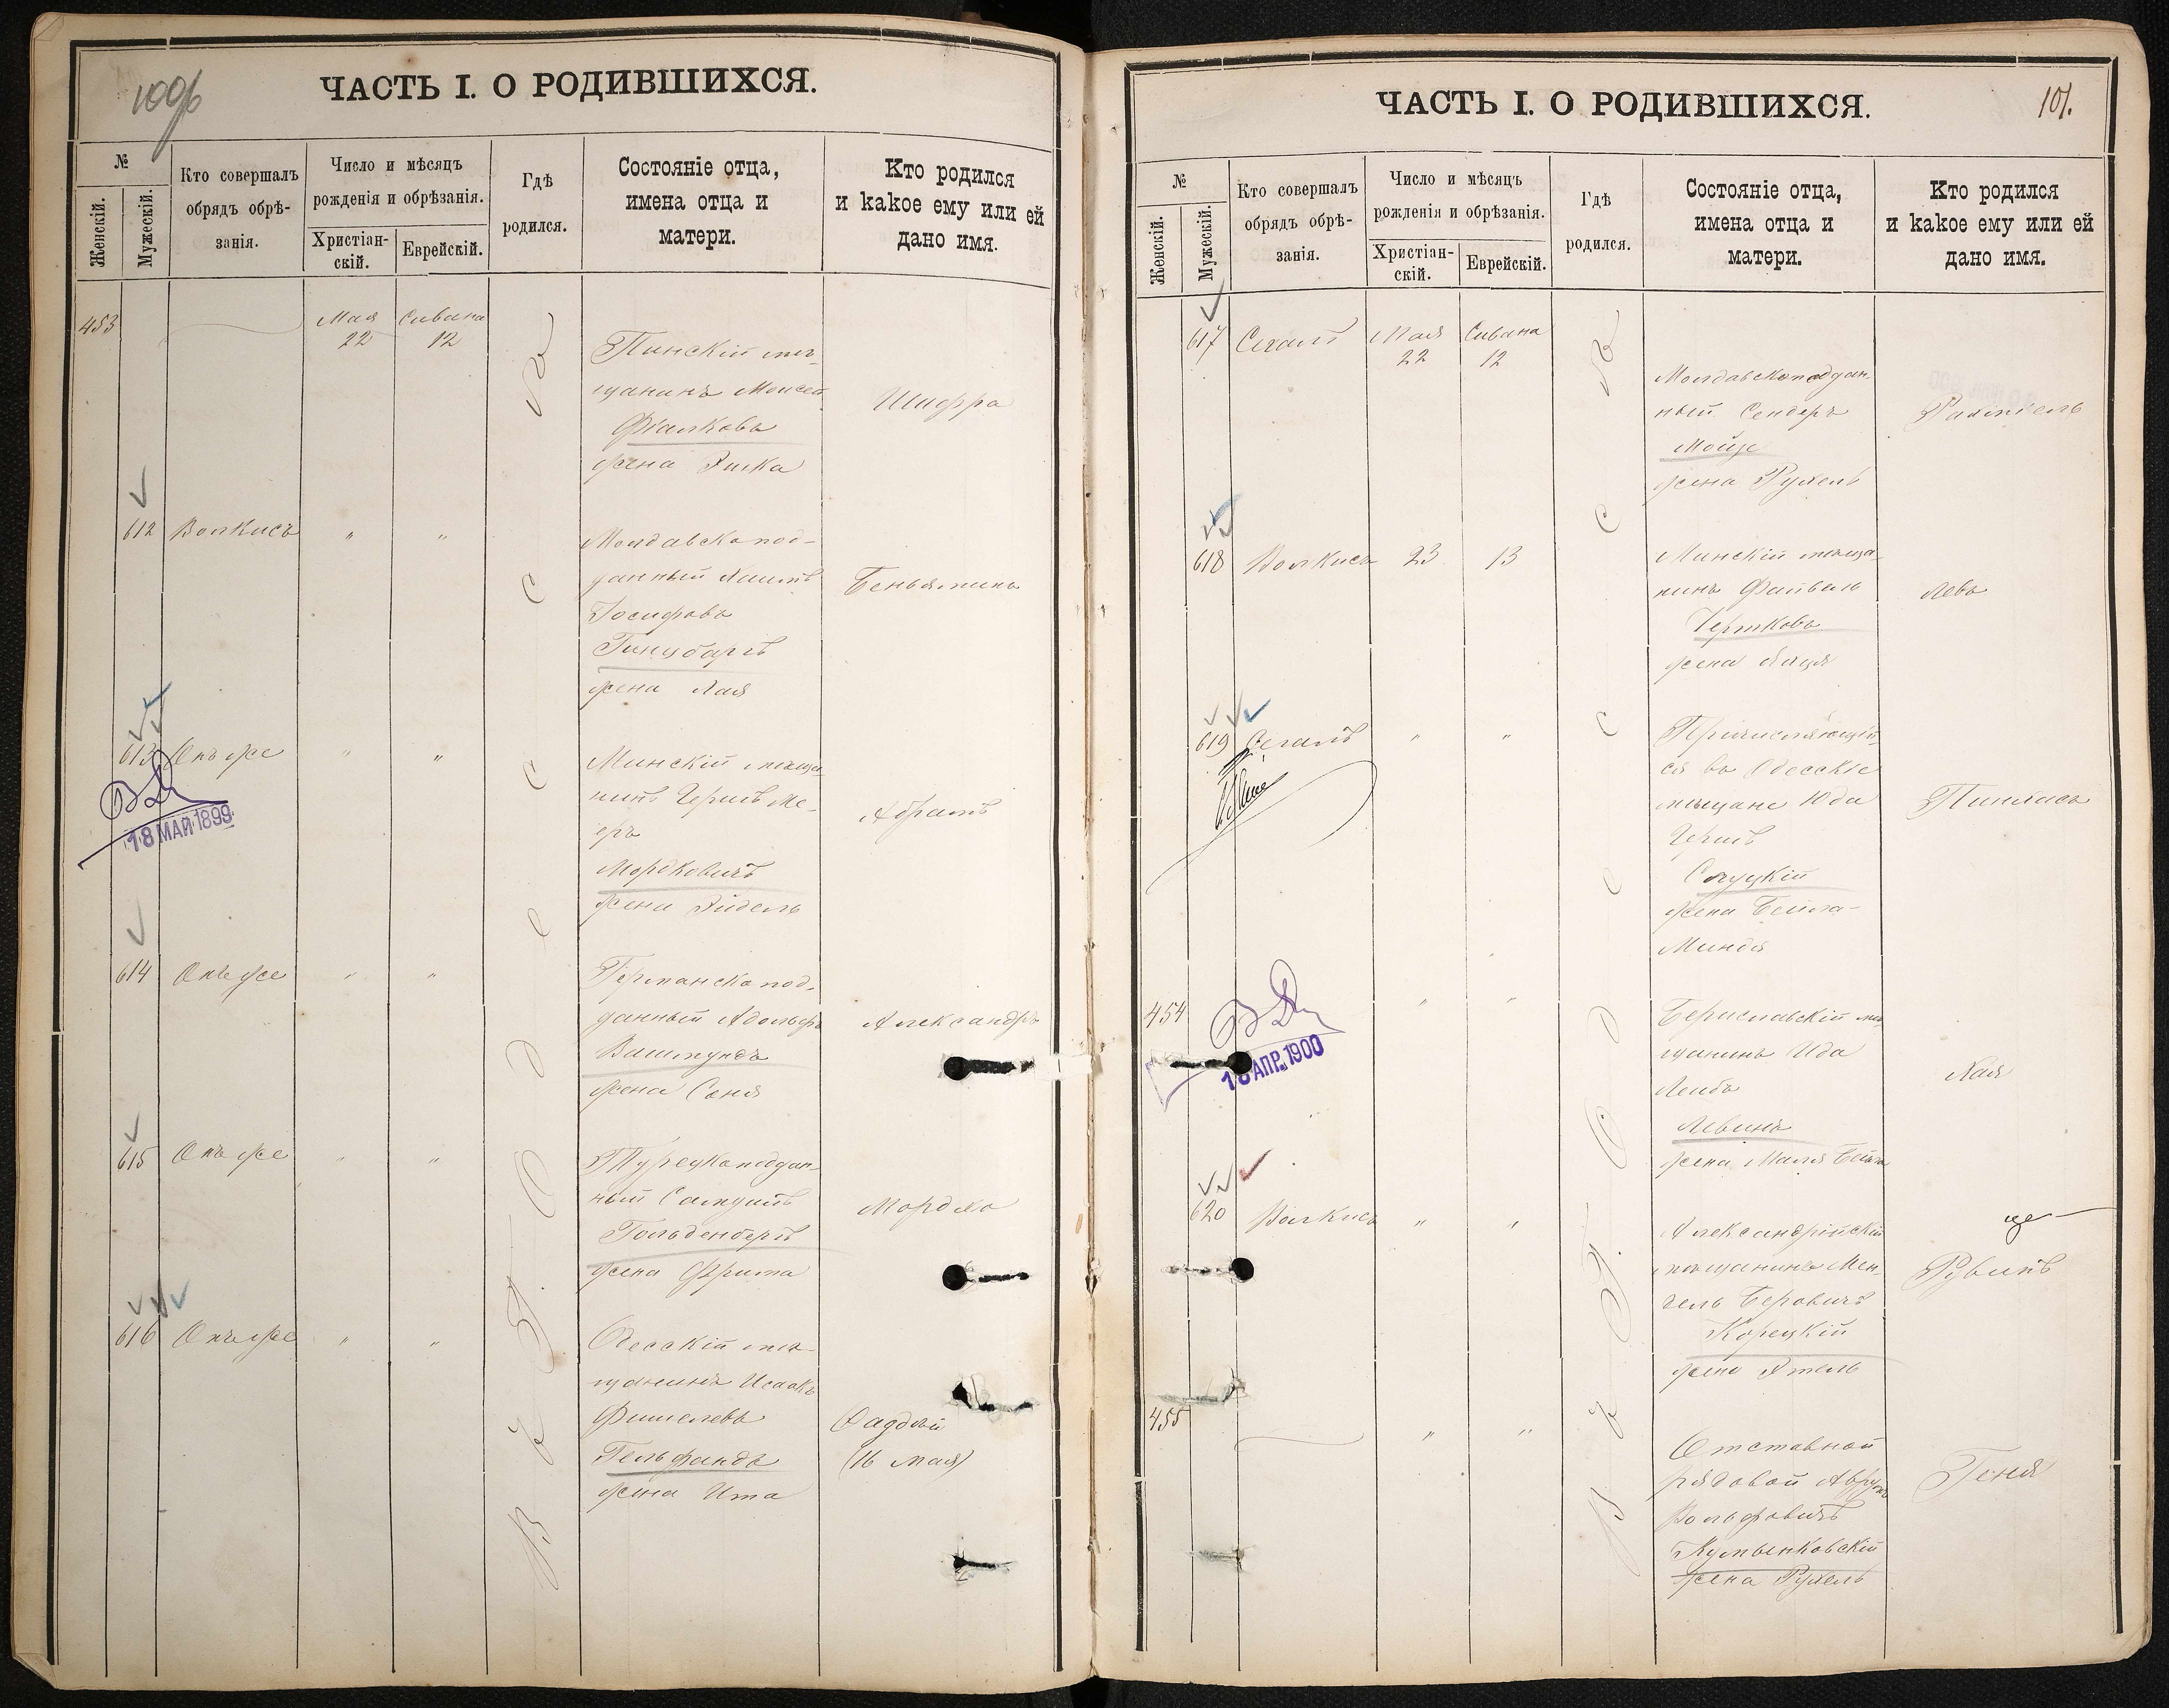 100об
ЧАСТЬ I. О РОДИВШИХСЯ.
№
Женскій.
Мужескій.
Кто совершалъ
обрядъ обрѣ-
занія.
Число и мѣсяцъ
рожденія и обрѣзанія.
Христіан-
скій.
Еврейскій.
Гдѣ
родился.
Состояніе отца,
имена отца и
матери.
Кто родился
и какое ему или ей
дано имя.
453
Мая
22
Сивана
12
Въ г. Одессѣ
Пинскій мѣ-
щанинъ Моисей
Фіалковъ
жена Рива
Шифра
612 Волкисъ " "
Молдавскопод-
данный Хаимъ
Іосифовъ
Гинцбаргъ
жена Хая
Беньяминъ
613 Онъ же " "
18 МАЙ 1899
Минскій мѣща-
нинъ Гершъ Ме-
еръ
Мордковичъ
жена Эйдель
Абрамъ
614 Онъ же " "
Германскопод-
данный Адольфъ
жена Соня
Александръ
615 Онъ же " "
Турецкоподдан-
ный Самуилъ
Гольденбергъ
жена Фрима
Мордко
616 Онъ же " "
Одесскій мѣ-
щанинъ Исаакъ
Фишелевъ
Гельфандъ
жена Ита
Фаддей
(16 мая)
101.
ЧАСТЬ I. О РОДИВШИХСЯ.
№
Женскій.
Мужескій.
Кто совершалъ
обрядъ обрѣ-
занія.
Число и мѣсяцъ
рожденія и обрѣзанія.
Христіан-
скій.
Еврейскій.
Гдѣ
родился.
Состояніе отца,
имена отца и
матери.
Кто родился
и какое ему или ей
дано имя.
617 Сегалъ
Мая
22
Сивана
12
Въ г. Одессѣ
Молдавскоподдан-
ный Сендеръ
жена Рухель
618 Волкисъ 23 13
Минскій мѣща-
нинъ Файвель
Чертковъ
жена
Левъ
619 Сегалъ " "
Причисляющій-
ся въ Одесскіе
мѣщане Юда
Гершъ
Слуцкій
жена Бейла-
Миндя
Пинхасъ
454 " "
18 АПР. 1900
Бериславскій мѣ-
щанинъ Ида
Лейбъ
Левинъ
жена Маля Бейла
Хая
620 Волкисъ " "
Александрійскій
мѣщанинъ Мен-
дель Беровичъ
Корецкій
жена Этель
Рувинъ
455 " "
Отставной
рядовой Аврумъ
Вольфовичъ
жена Рухель
Геня